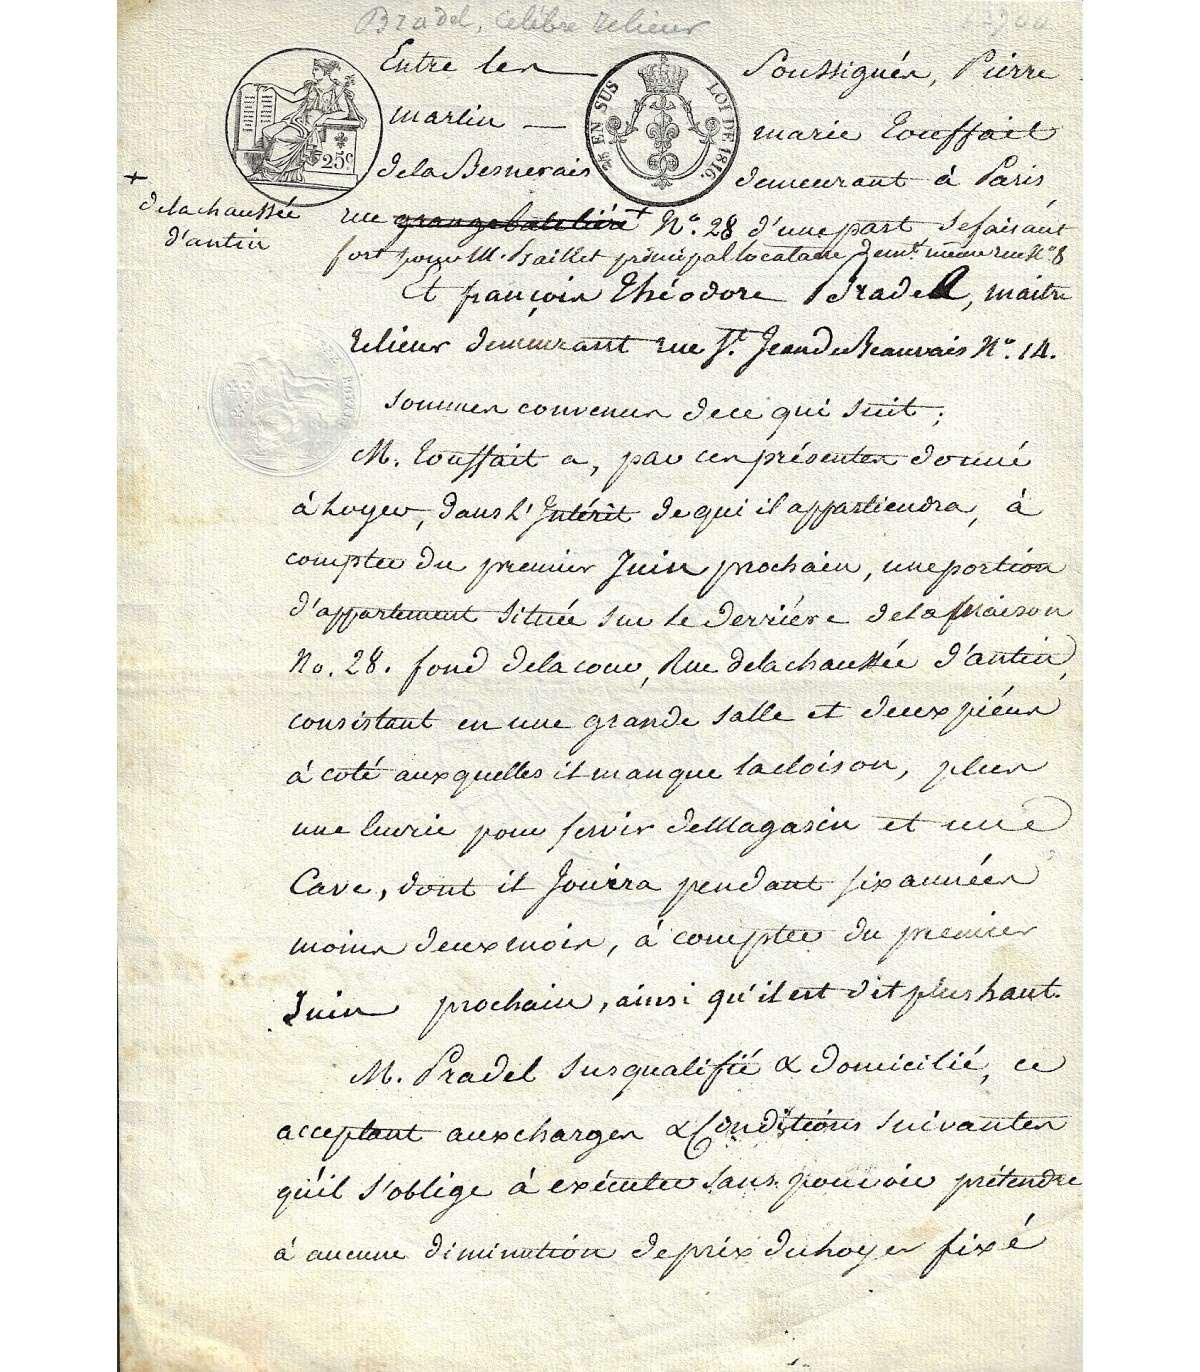 Bradel, célèbre relieur
Entre les Soussignés, Pierre
martin marie Touffait
25 EN SUS LOI DE 1816.
25c
dela Besnerais demeurant à Paris
+
dela chaussée
d'antin
rue grange bateliére + No. 28 d'une part sefaisant
fort pour M. Baillet principal locataire demt. même rue No 8
Et françois Théodore Bradel, maitre
relieur demeurant rue St. Jean de Beauvais No. 14.
sommes convenus de ce qui suit;
M. Touffait a, par ces présentes donné
à loyer, dans l'Intérêt de qui il appartiendra, à
compter du premier Juin prochain, une portion
d'appartement située sur le derriére dela maison
No. 28. fond dela cour, Rue dela chaussée d'antin,
consistant en une grande salle et deux piéces
à coté auxquelles il manque la cloison, plus
une pour servir de Magasin et une
Cave, dont il Jouira pendant six années
moins deux mois, à compter du premier
Juin prochain, ainsi qu'il est dit plus haut.
M. Bradel susqualifié & domicilié, ce
acceptant aux charges & Conditions suivantes
qu'il s'oblige à exécuter sans pouvoir prétendre
à aucune diminution de prix du loyer fixé